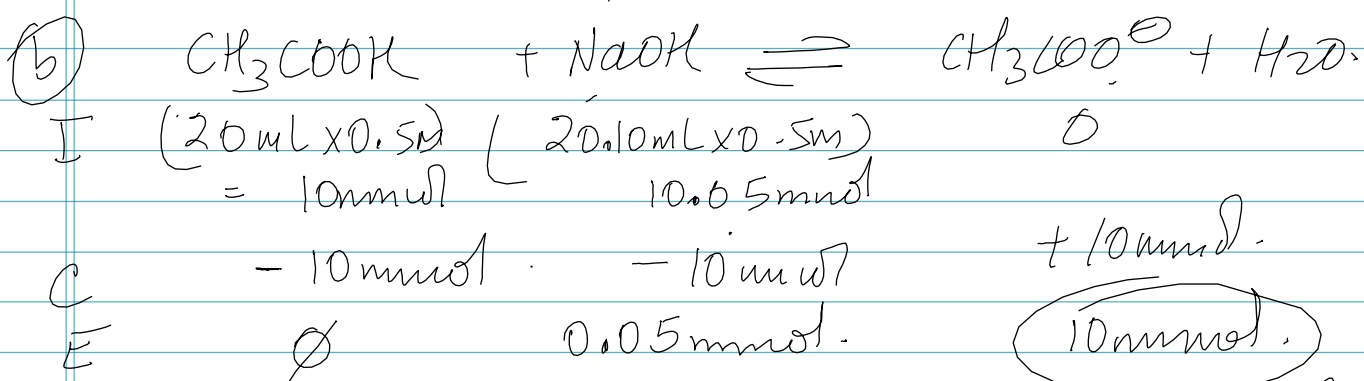 (b) CH3COOH + NaOH ⇌ CH3COO⊖ + H2O.
I (20mL x0.5M) ( 20.10mL x0.5M) 0
= 10mmol 10.05mmol
+10mmol.
C - 10mmol - 10mmol
E ∅ 0.05mmol. 10mmol.